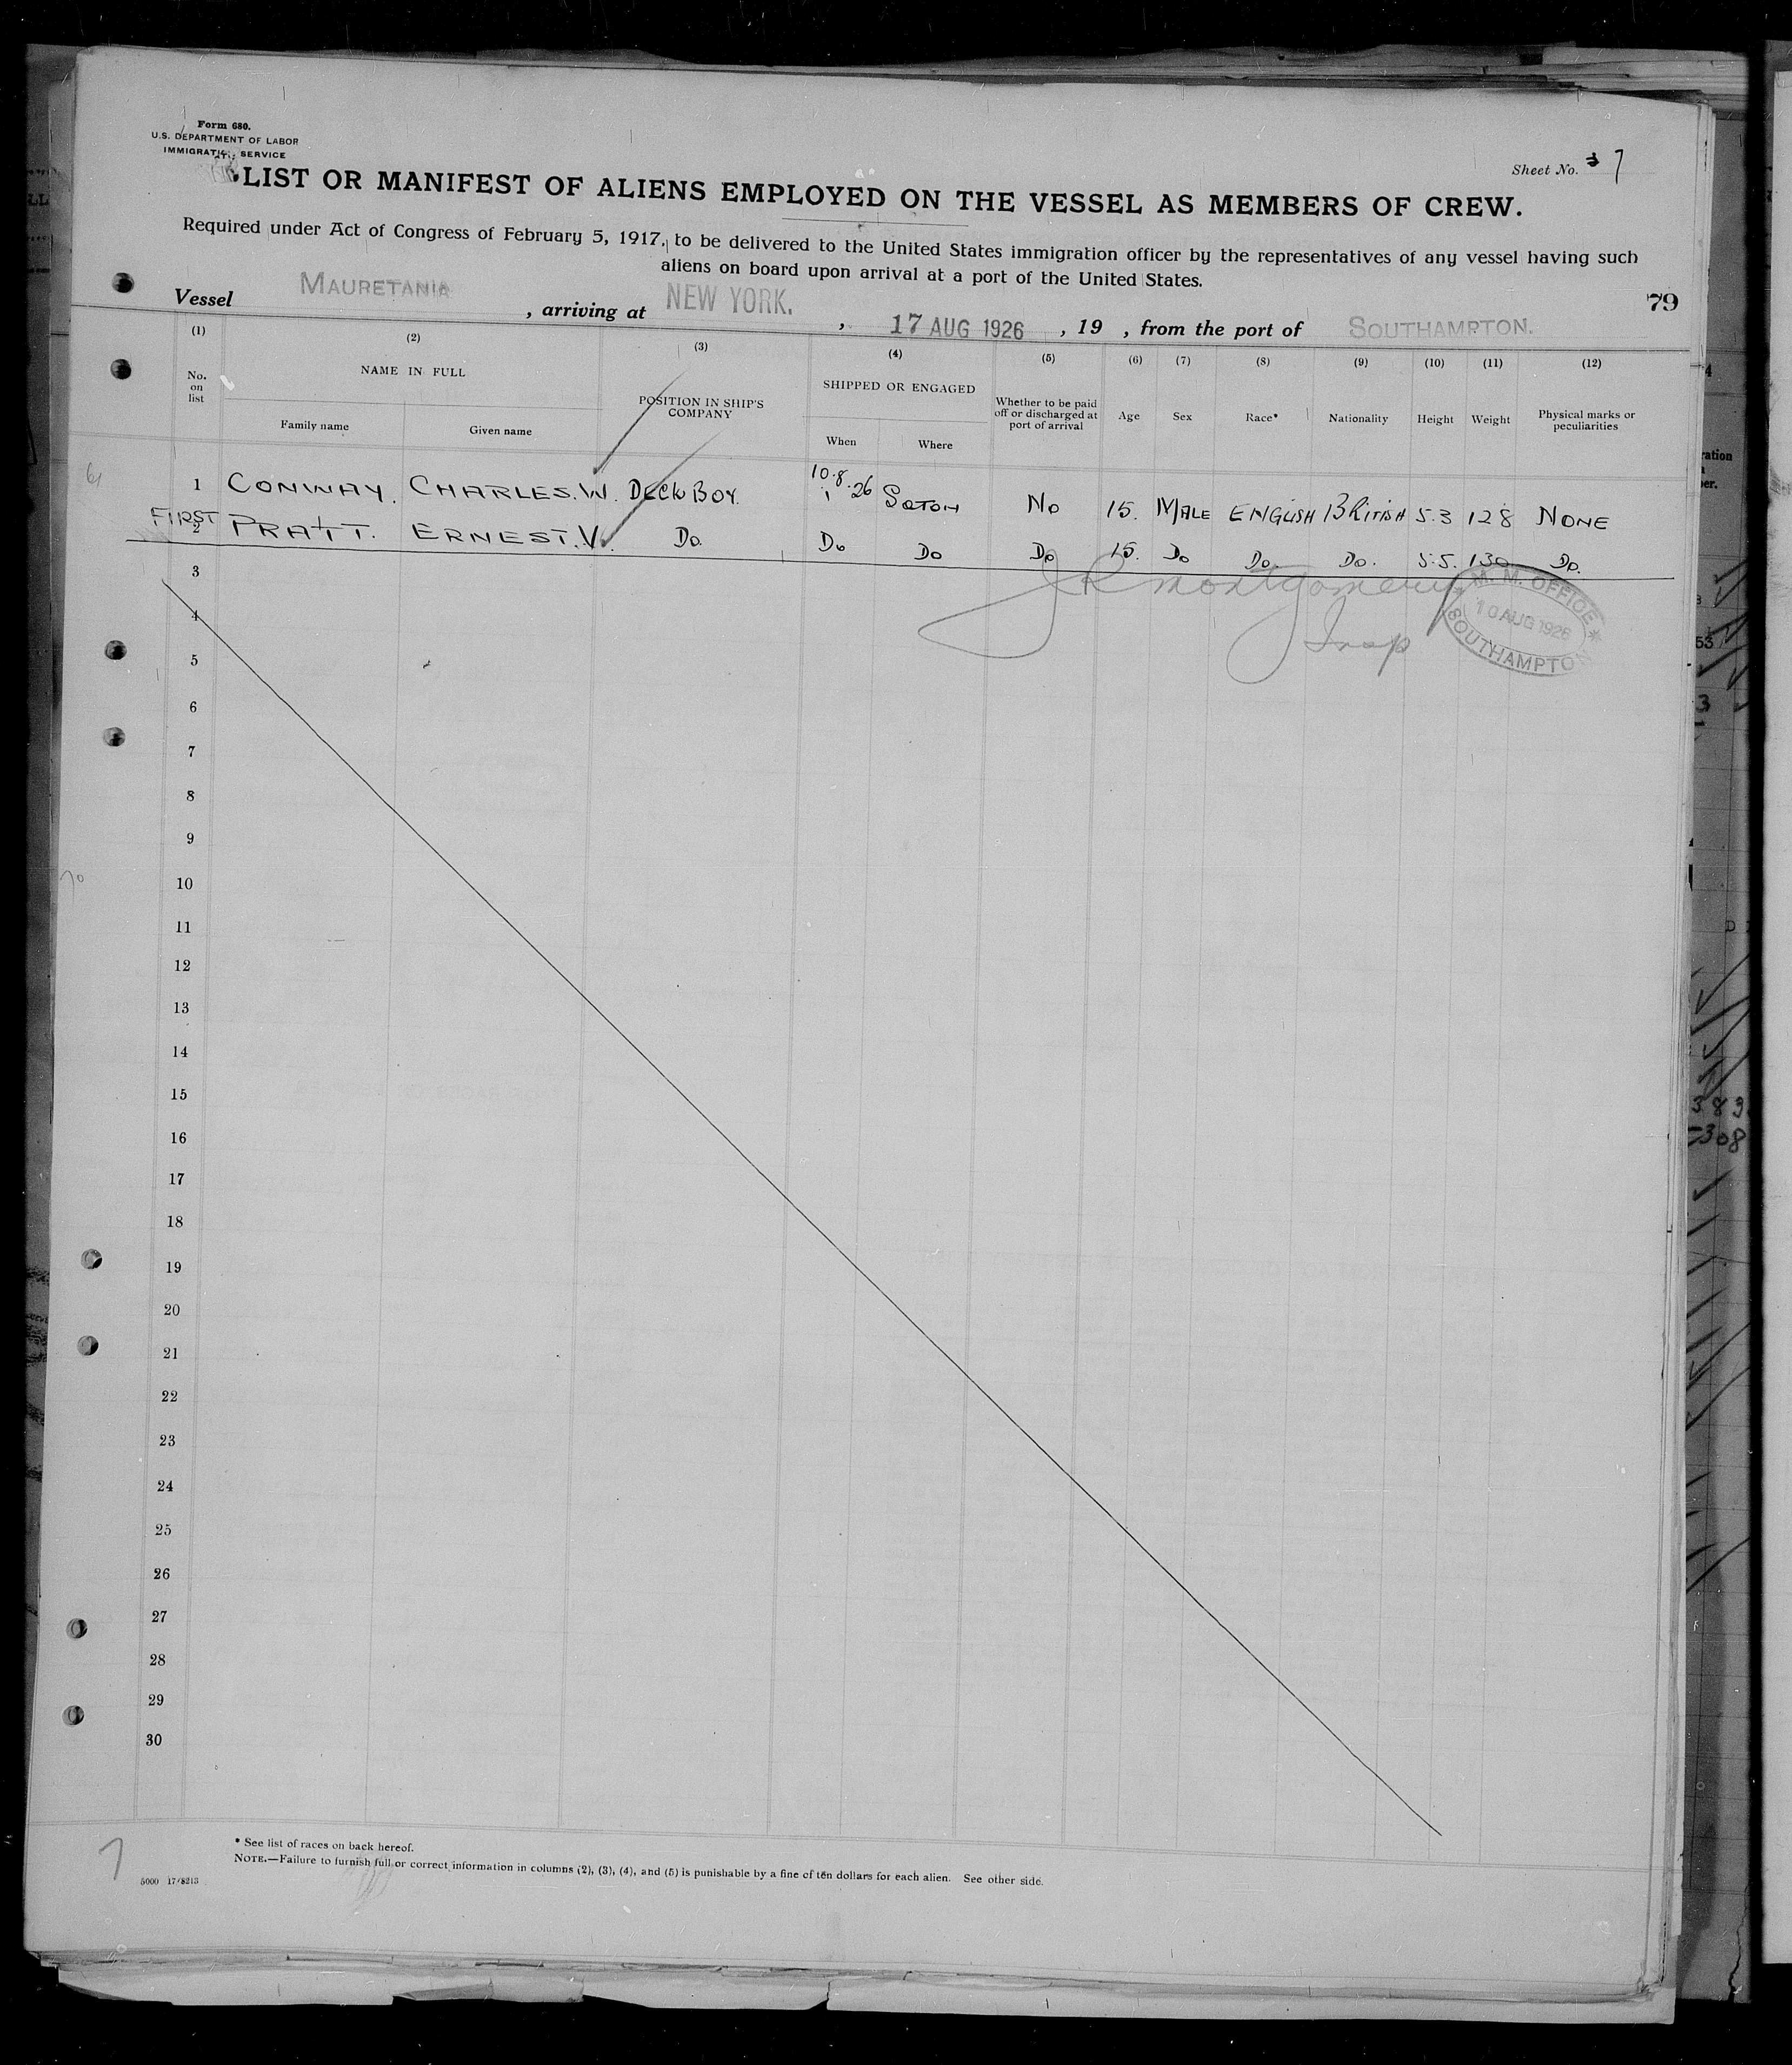 Form 680.
U.S. DEPARTMENT OF LABOR
IMMIGRATION SERVICE
Sheet No. 7
LIST OR MANIFEST OF ALIENS EMPLOYED ON THE VESSEL AS MEMBERS OF CREW.
Required under Act of Congress of February 5, 1917, to be delivered to the United States immigration officer by the representatives of any vessel having such
aliens on board upon arrival at a port of the United States.
79
Vessel MAURETANIA, arriving at NEW YORK., 17 AUG 1926, 19 , from the port of SOUTHAMPTON.
(1) (2) (3) (4) (5) (6) (7) (8) (9) (10) (11) (12)
No. on list NAME IN FULL Family name Given name POSITION IN SHIP'S COMPANY SHIPPED OR ENGAGED When Where Whether to be paid off or discharged at port of arrival Age Sex Race* Nationality Height Weight Physical marks or peculiarities
1 CONWAY. CHARLES.W. DECK BOY. 10.8.26 SOTON NO 15. MALE ENGLISH BRITISH 5.3 128 NONE
FIRST
2 PRATT. ERNEST.V. DO. DO DO DO 15. DO DO. DO. 5.5. 130 DO.
3
J R Montgomery
Insp
M. M. OFFICE
10 AUG 1926
SOUTHAMPTON
4
5
6
7
8
9
10
11
12
13
14
15
16
17
18
19
20
21
22
23
24
25
26
27
28
29
30
* See list of races on back hereof.
NOTE.—Failure to furnish full or correct information in columns (2), (3), (4), and (5) is punishable by a fine of ten dollars for each alien. See other side.
7
5000 17/8213